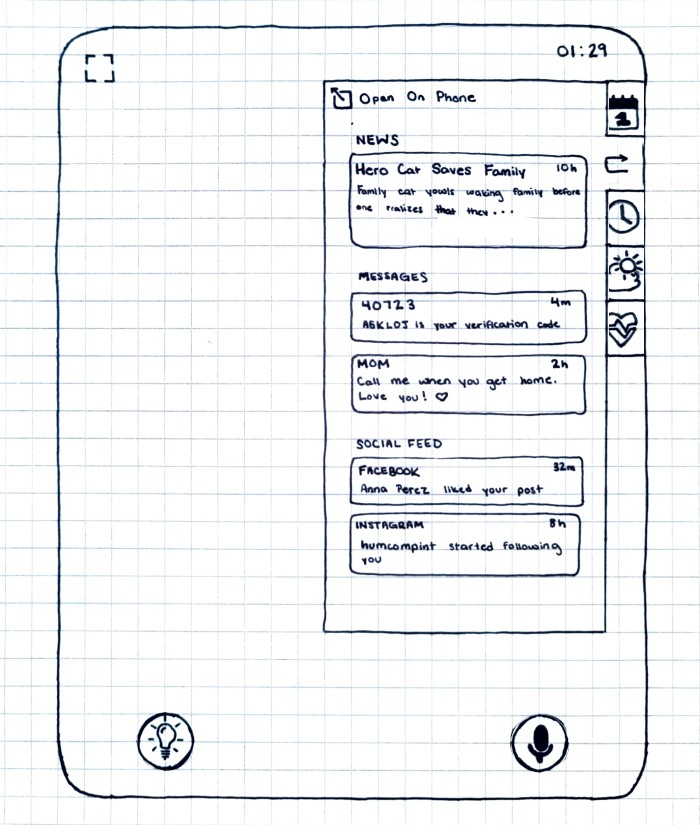 01:29
Open On Phone
NEWS
Hero Cat Saves Family 10h
Family cat yowls waking family before
one realizes that they...
MESSAGES
40723 4m
A6KLOJ is your verification code
MOM 2h
Call me when you get home.
Love you! ♡
SOCIAL FEED
FACEBOOK 32m
Anna Perez liked your post
INSTAGRAM 8h
humcompint started following
you